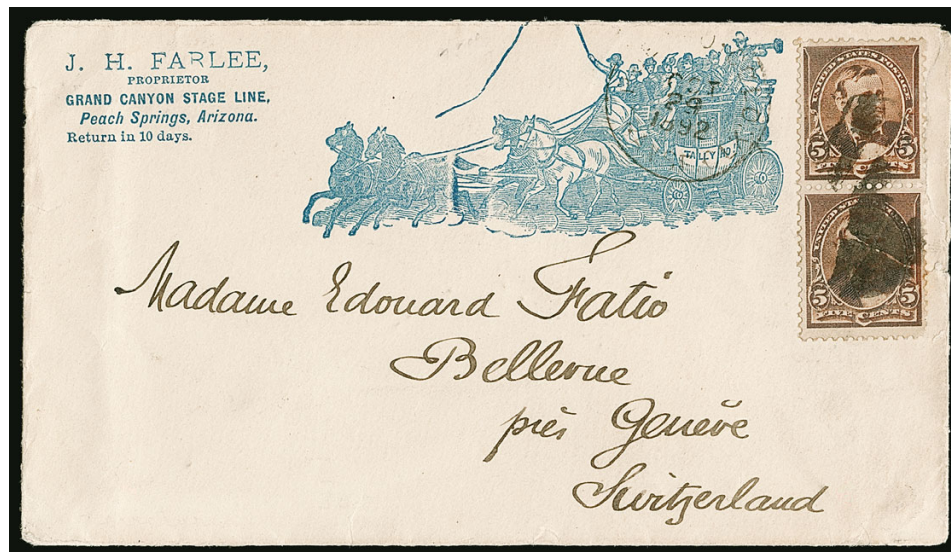 J. H. FARLEE,
PROPRIETOR
GRAND CANYON STAGE LINE,
Peach Springs, Arizona.
Return in 10 days.
TALLY HO
OCT
29
1892
UNITED STATES POSTAGE
5 5
FIVE CENTS
5 5
FIVE CENTS
Madame Edouard Fatio
Bellevue
près Genève
Switzerland